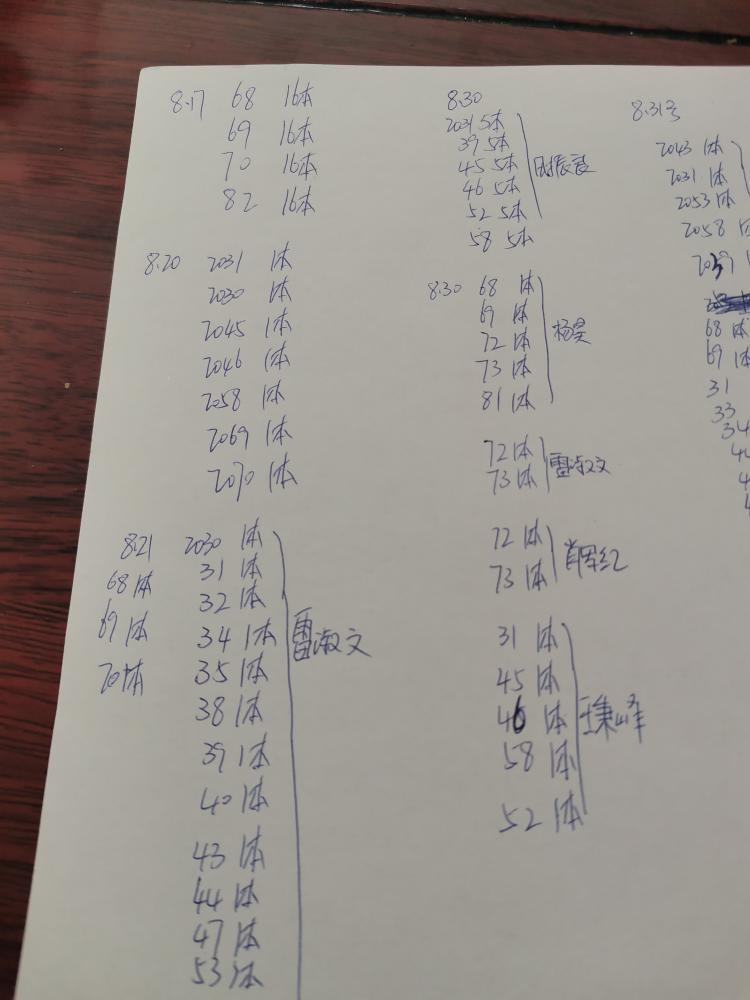 8.17 68 16本
69 16本
70 16本
82 16本
8.20 2031 1本
2030 1本
2045 1本
2046 1本
2058 1本
2069 1本
2070 1本
8.21 2030 1本
31 1本
68 1本
32 1本
69 1本
34 1本
雷淑文
70 1本
35 1本
38 1本
39 1本
40 1本
43 1本
44 1本
47 1本
53 1本
8.30
2031 5本
39 5本
45 5本
46 5本
52 5本
58 5本
8.30 68 1本
69 1本
72 1本
杨昊
73 1本
81 1本
72 1本
雷淑文
73 1本
72 1本
肖军红
73 1本
31 1本
45 1本
46 1本
王秉峰
58 1本
52 1本
8.31号
2043 1本
2031 1本
2053 1本
2058
68 1本
69 1本
31
33
34